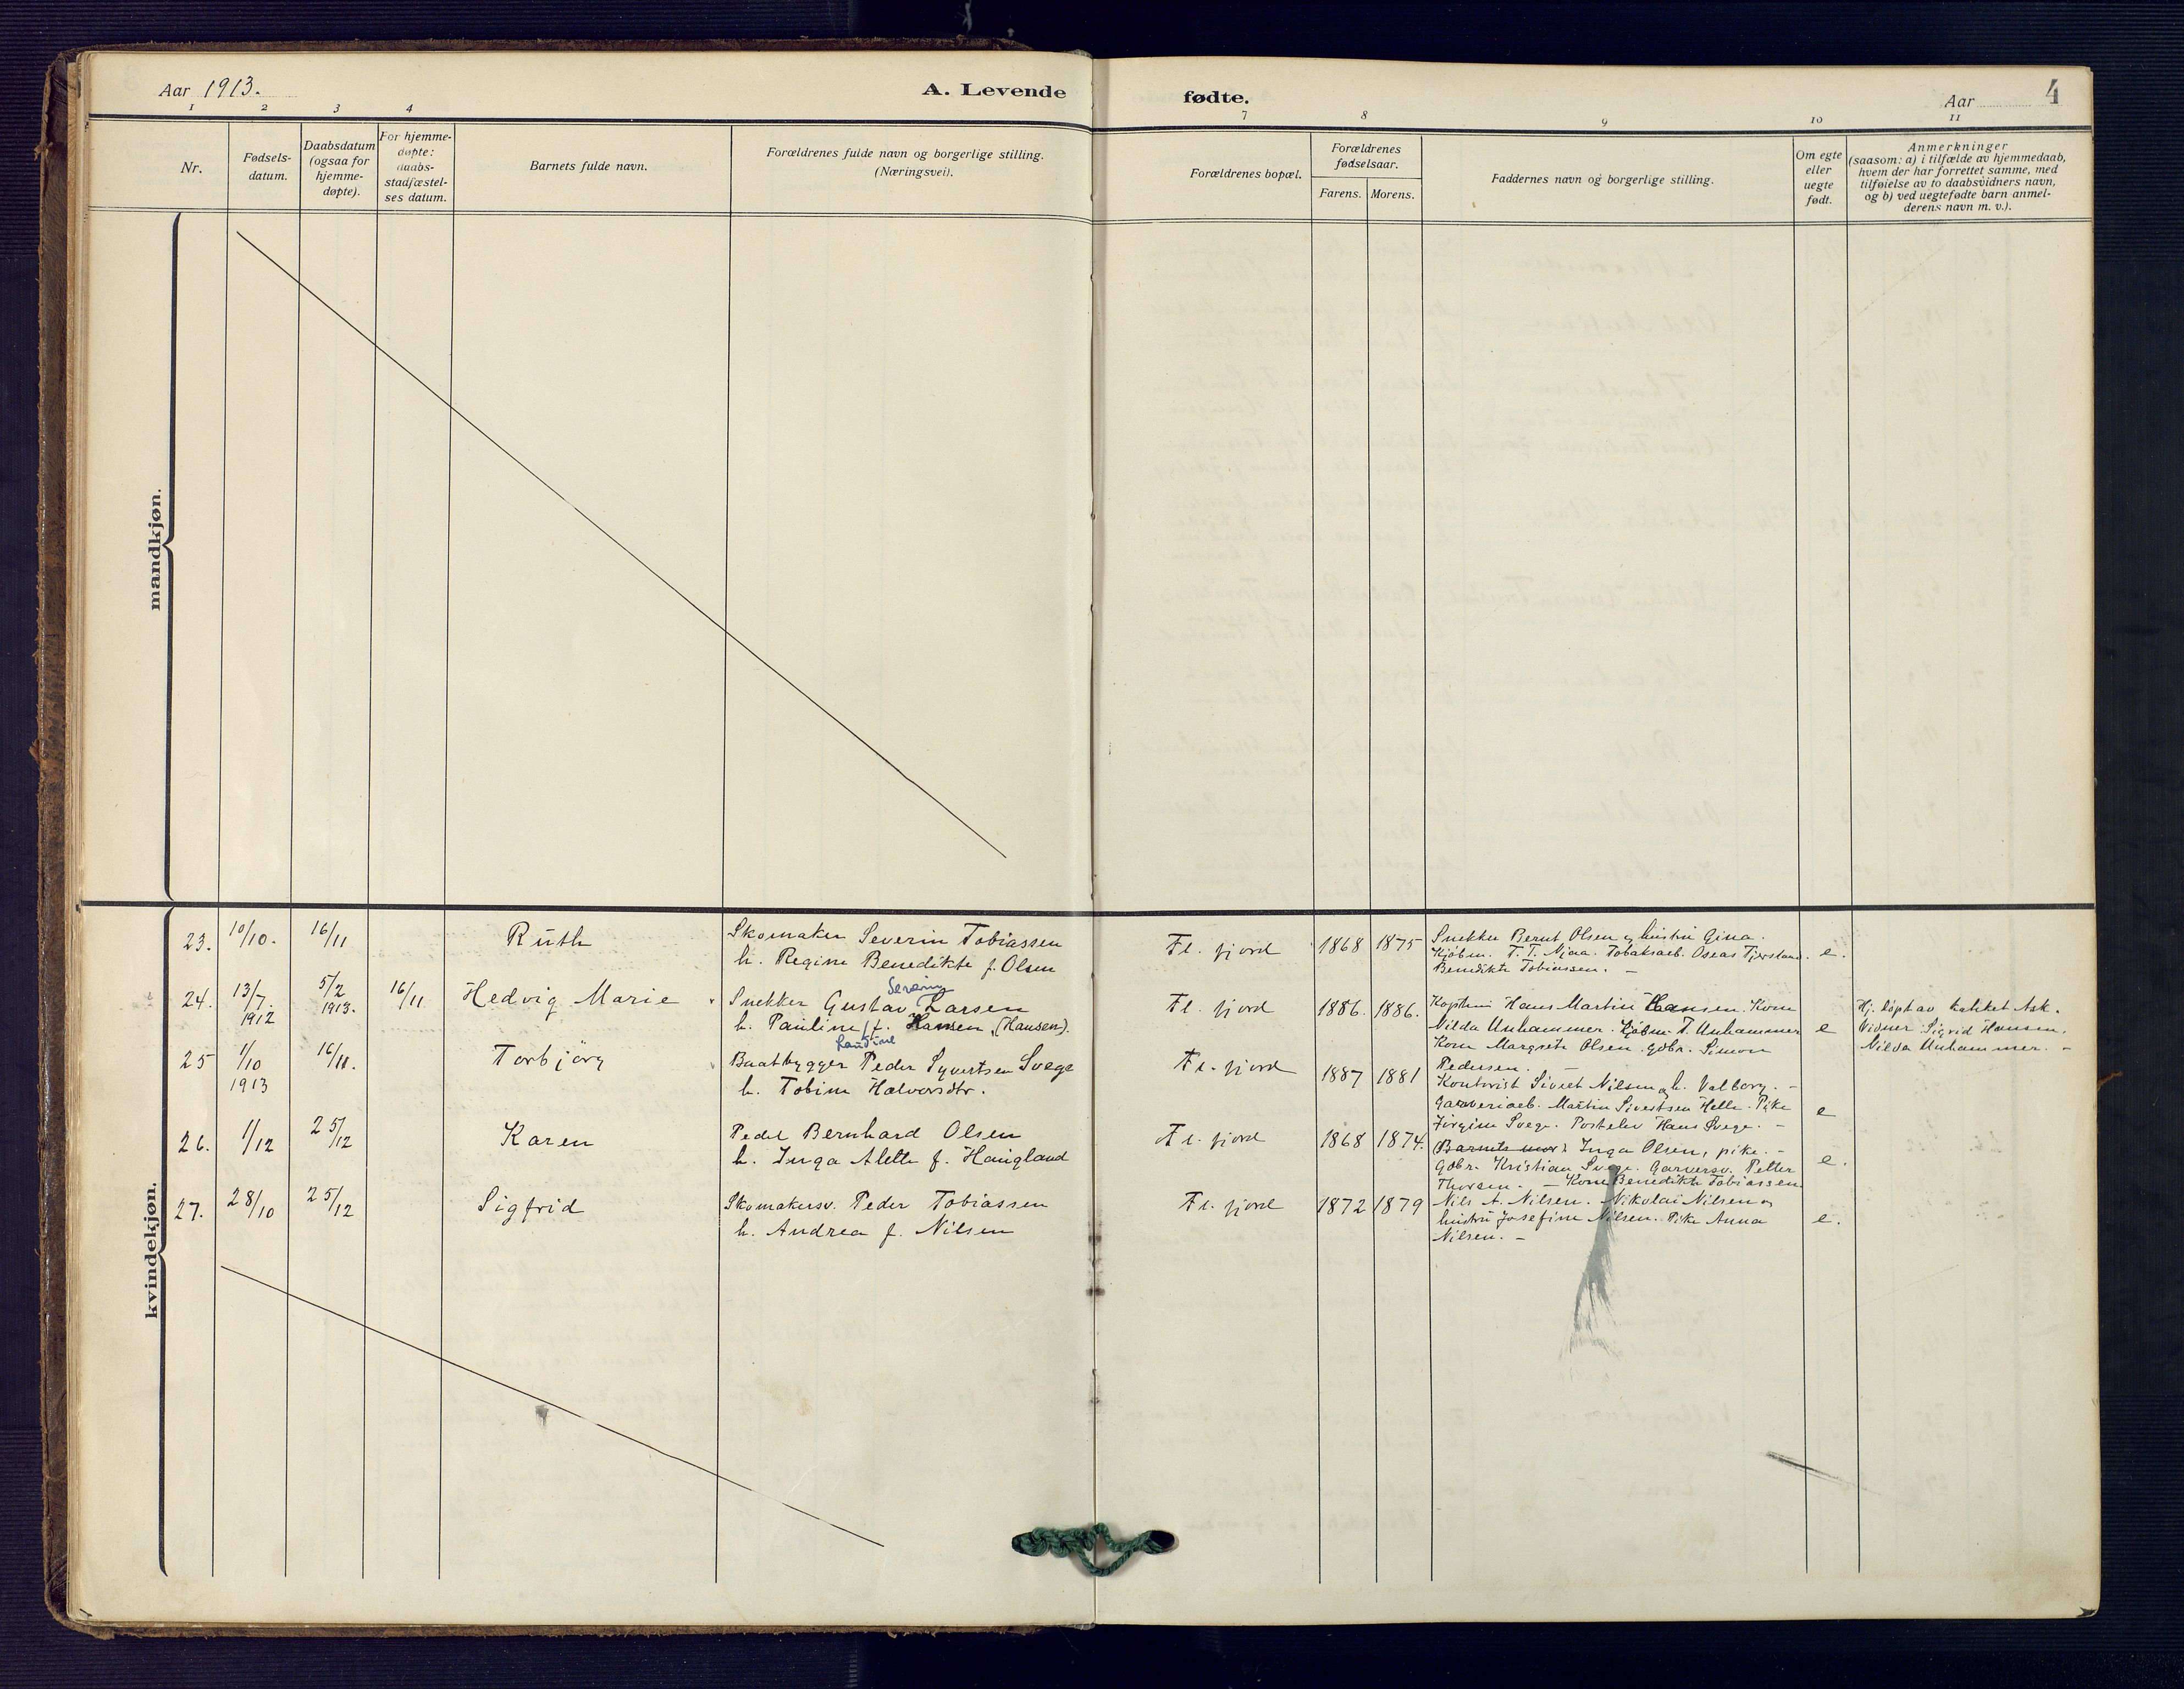 Aar 1913.
A. Levende
fødte.
Aar
4
1 2 3 4
7 8 9 10 11
Nr.
Fødsels-
datum.
Daabsdatum
(ogsaa for
hjemme-
døpte).
For hjemme-
døpte:
daabs-
stadfæstel-
ses datum.
Barnets fulde navn.
Forældrenes fulde navn og borgerlige stilling.
(Næringsvei).
Forældrenes bopæl.
Forældrenes
fødselsaar.
Farens. Morens.
Faddernes navn og borgerlige stilling.
Om egte
eller
uegte
født.
Anmerkninger
(saasom: a) i tilfælde av hjemmedaab,
hvem der har forrettet samme, med
tilføielse av to daabsvidners navn,
og b) ved uegtefødte barn anmel-
derens navn m. v.).
mandkjøn.
kvindekjøn.
23. 10/10. 16/11 Ruth
Skomaker Severin Tobiassen
h. Regine Benedikte f. Olsen
Fl. fjord 1868 1875
Snekker Bernt Olsen og hustru Gina.
Kjøbm. T. T. Njaa. Tobaksarb. Oseas Tjersland.
Benedikte Tobiassen. –
e.
24. 13/7. 1912 5/2 1913. 16/11 Hedvig Marie
Severin
Snekker Gustav Larsen
h. Pauline f. Hansen (Hansen).
Fl. fjord 1886. 1886.
Kaptein Hans Martin Hansen. Kone
Nilda Unhammer. Kjøbm. T. Unhammer
Kone Margrete Olsen. gdbr. Simon
Pedersen. –
e
Hj. døpt av kateket Ask.
Vidner: Sigrid Hansen.
Nilda Unhammer. –
25 1/10 1913 16/11. Torbjörg
Baatbygger Peder Syvertsen Svege
h. Tobine Halvorsdtr.
Fl. fjord 1887 1881
Kontorist Sivert Nilsen og h. Valborg. –
Garveriarb. Martin Sivertsen Helle. Pike
Jørgine Svege. Postelev Hans Svege. –
e
26. 1/12 25/12 Karen
Pedel Bernhard Olsen
h. Inga Alette f. Haugland
Fl. fjord 1868 1874.
Barnets mor. Inga Olsen, pike. –
Gdbr. Kristian Svege. Garversv. Petter
Thorsen. – Kone Benedikte Tobiassen.
e.
27. 28/10 25/12 Sigfrid
Skomakersv. Peder Tobiassen
h. Andrea f. Nilsen
Fl. fjord 1872 1879
Nils A. Nilsen. Nikolai Nilsen og
hustru Josefine Nilsen. Pike Anna
Nilsen. –
e.